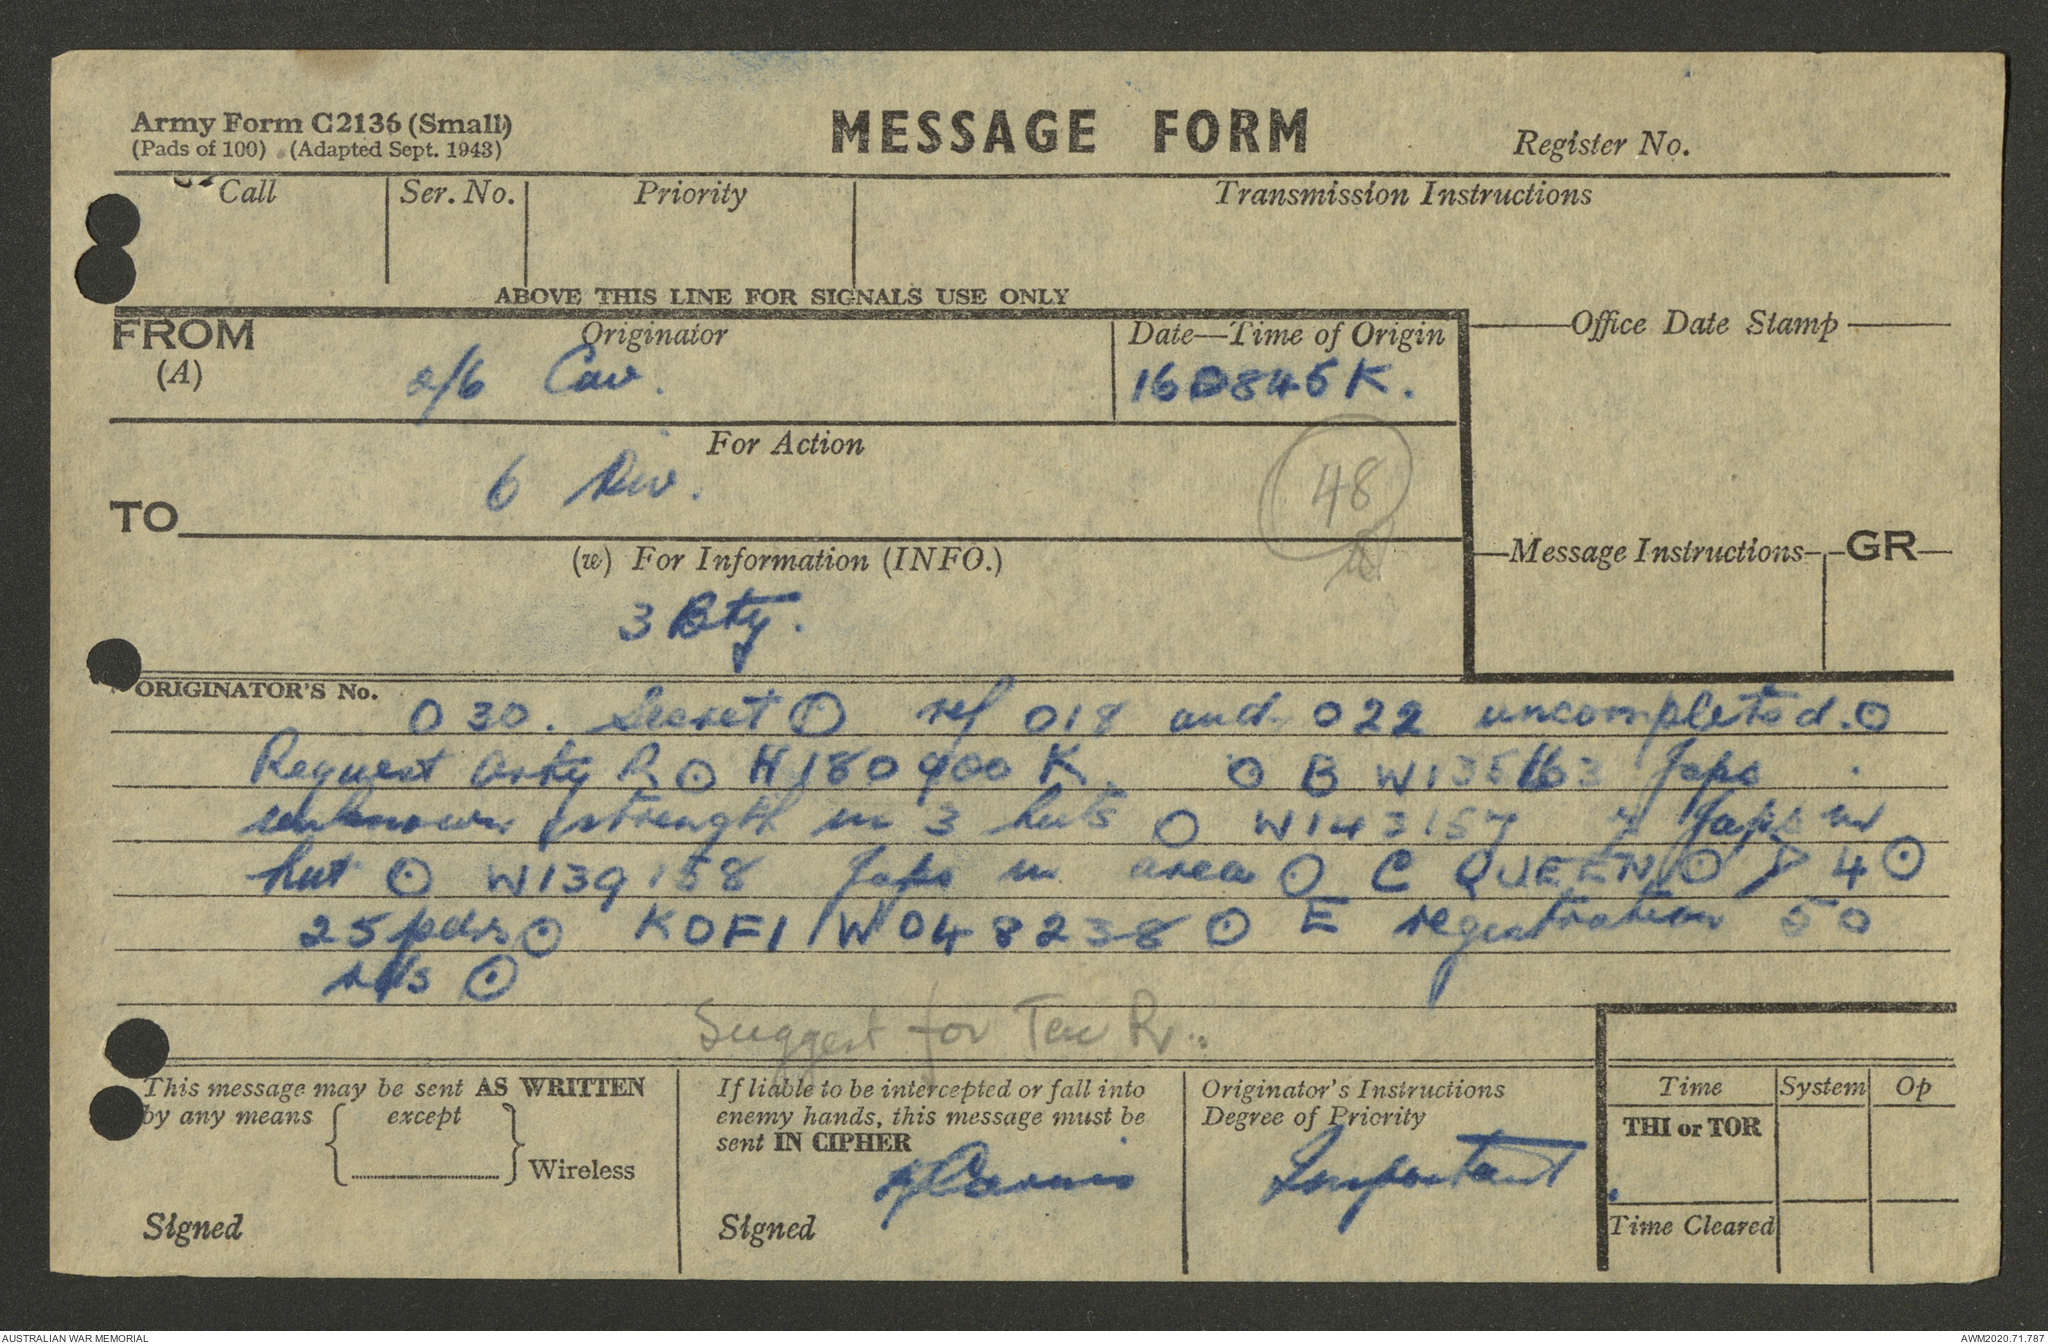 Army Form C2136 (Small)
(Pads of 100) (Adapted Sept. 1943)
MESSAGE FORM
Register No.
Call
Ser. No.
Priority
Transmission Instructions
ABOVE THIS LINE FOR SIGNALS USE ONLY
FROM
(A)
Originator
2/6 Cav.
Date—Time of Origin
160845K.
Office Date Stamp
For Action
6 Div.
48
TO
(w) For Information (INFO.)
3 Bty.
Message Instructions
GR
ORIGINATOR'S No.
O 30. Secret ⊙ ref 018 and 022 uncompleted. O
Request Arty R ⊙ H 180900 K. ⊙ B W135163 Japs
unknown strength in 3 huts ⊙ W143157 Japs in
hut ⊙ W139158 Japs in area ⊙ C QUEEN ⊙ D 4 ⊙
25 pdrs ⊙ KOFI W048238 ⊙ E registration 50
rds ⊙
Suggest for Tac R..
This message may be sent AS WRITTEN
by any means { except } Wireless
Signed
If liable to be intercepted or fall into
enemy hands, this message must be
sent IN CIPHER
Signed
Originator's Instructions
Degree of Priority
Important
Time
System
Op
THI or TOR
Time Cleared
AUSTRALIAN WAR MEMORIAL
AWM2020.71.787